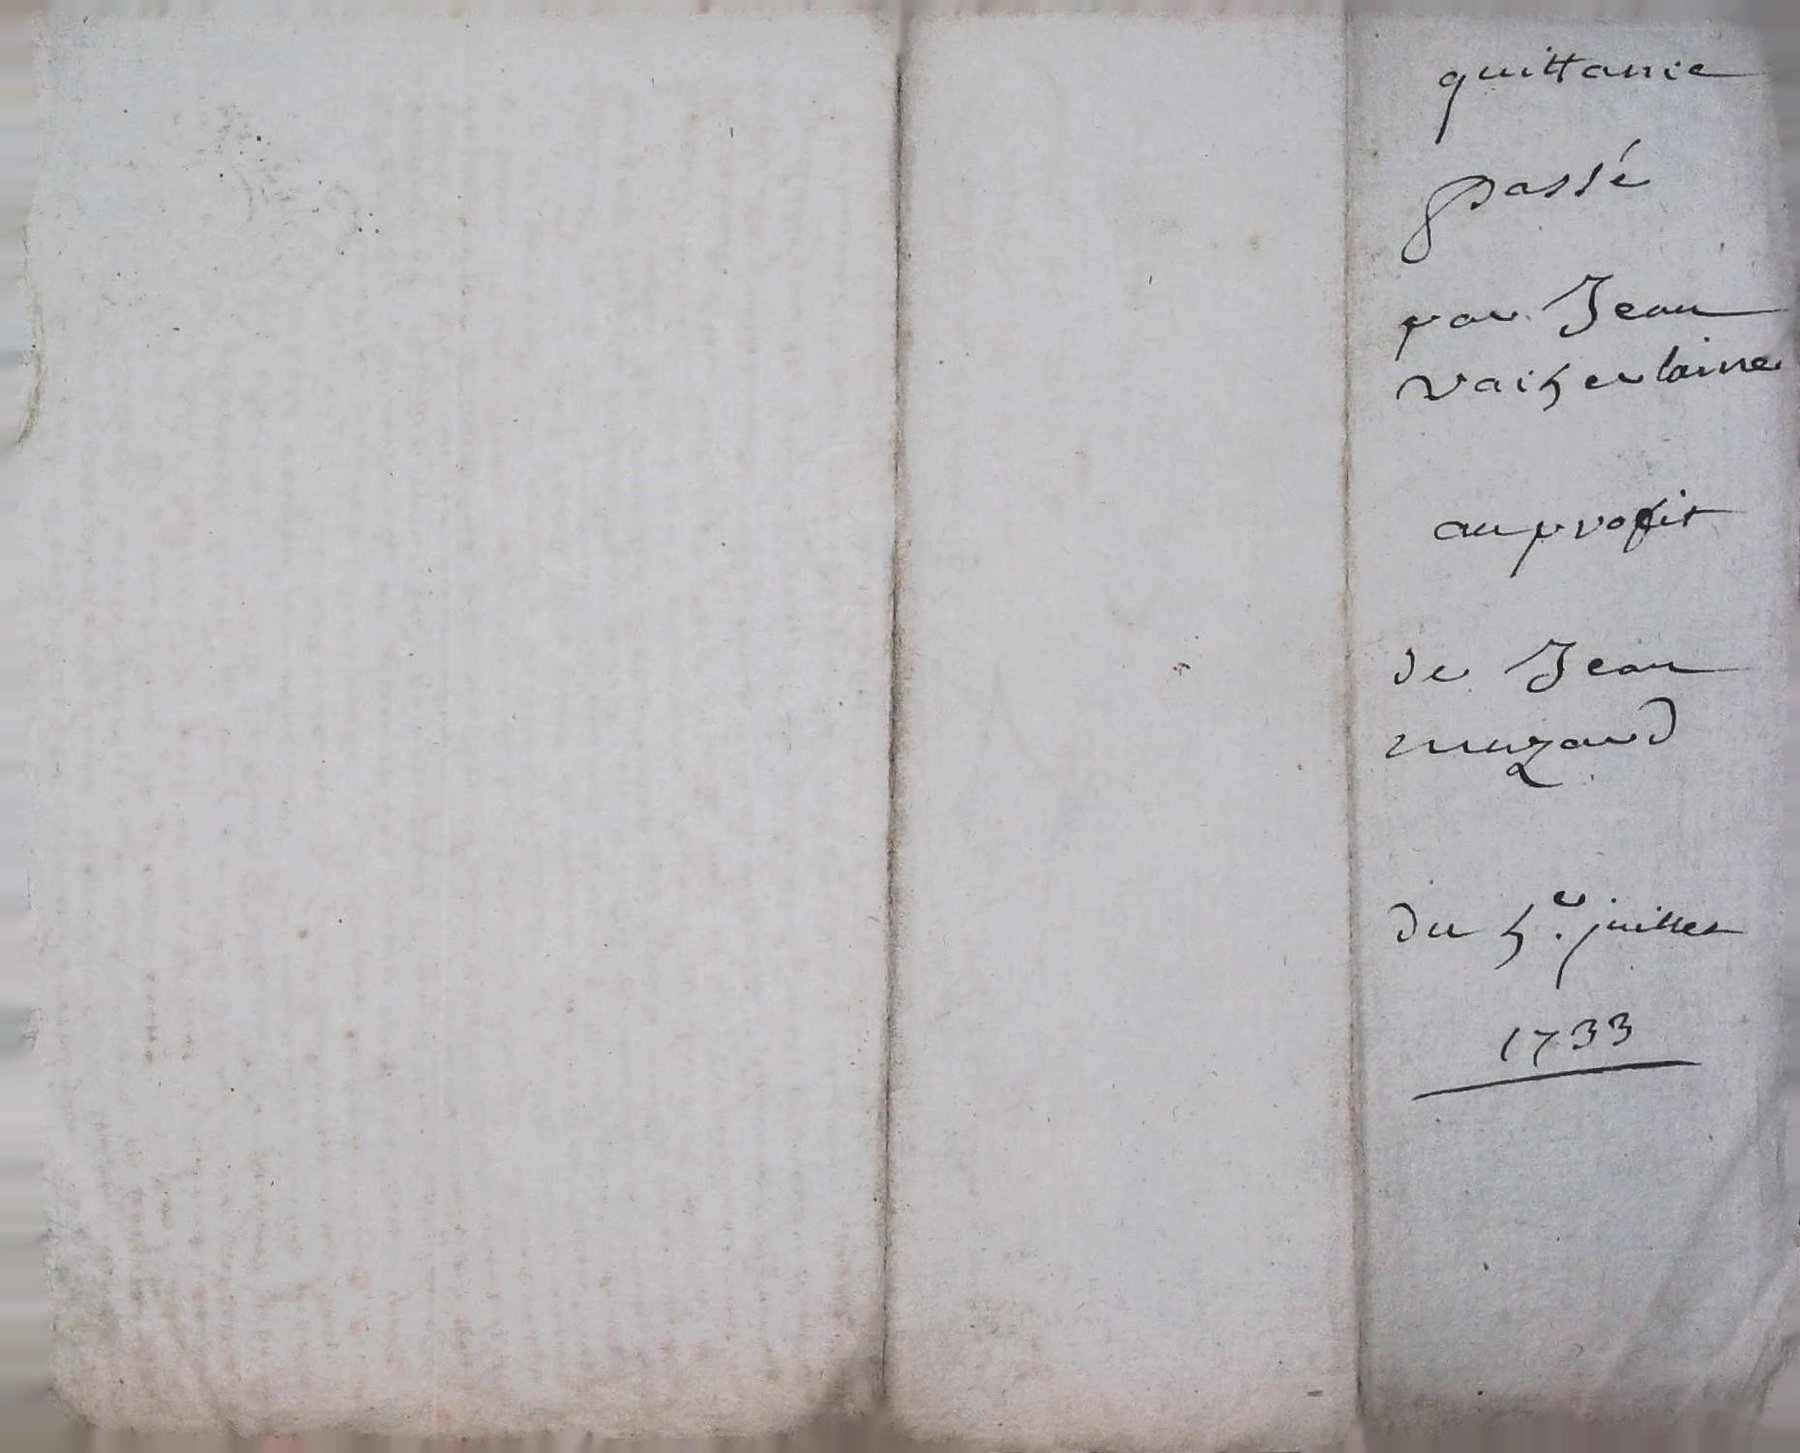 quittance
passé
par Jean
vacher laine
au profit
de Jean
muzard
du 5e. juillet
1733